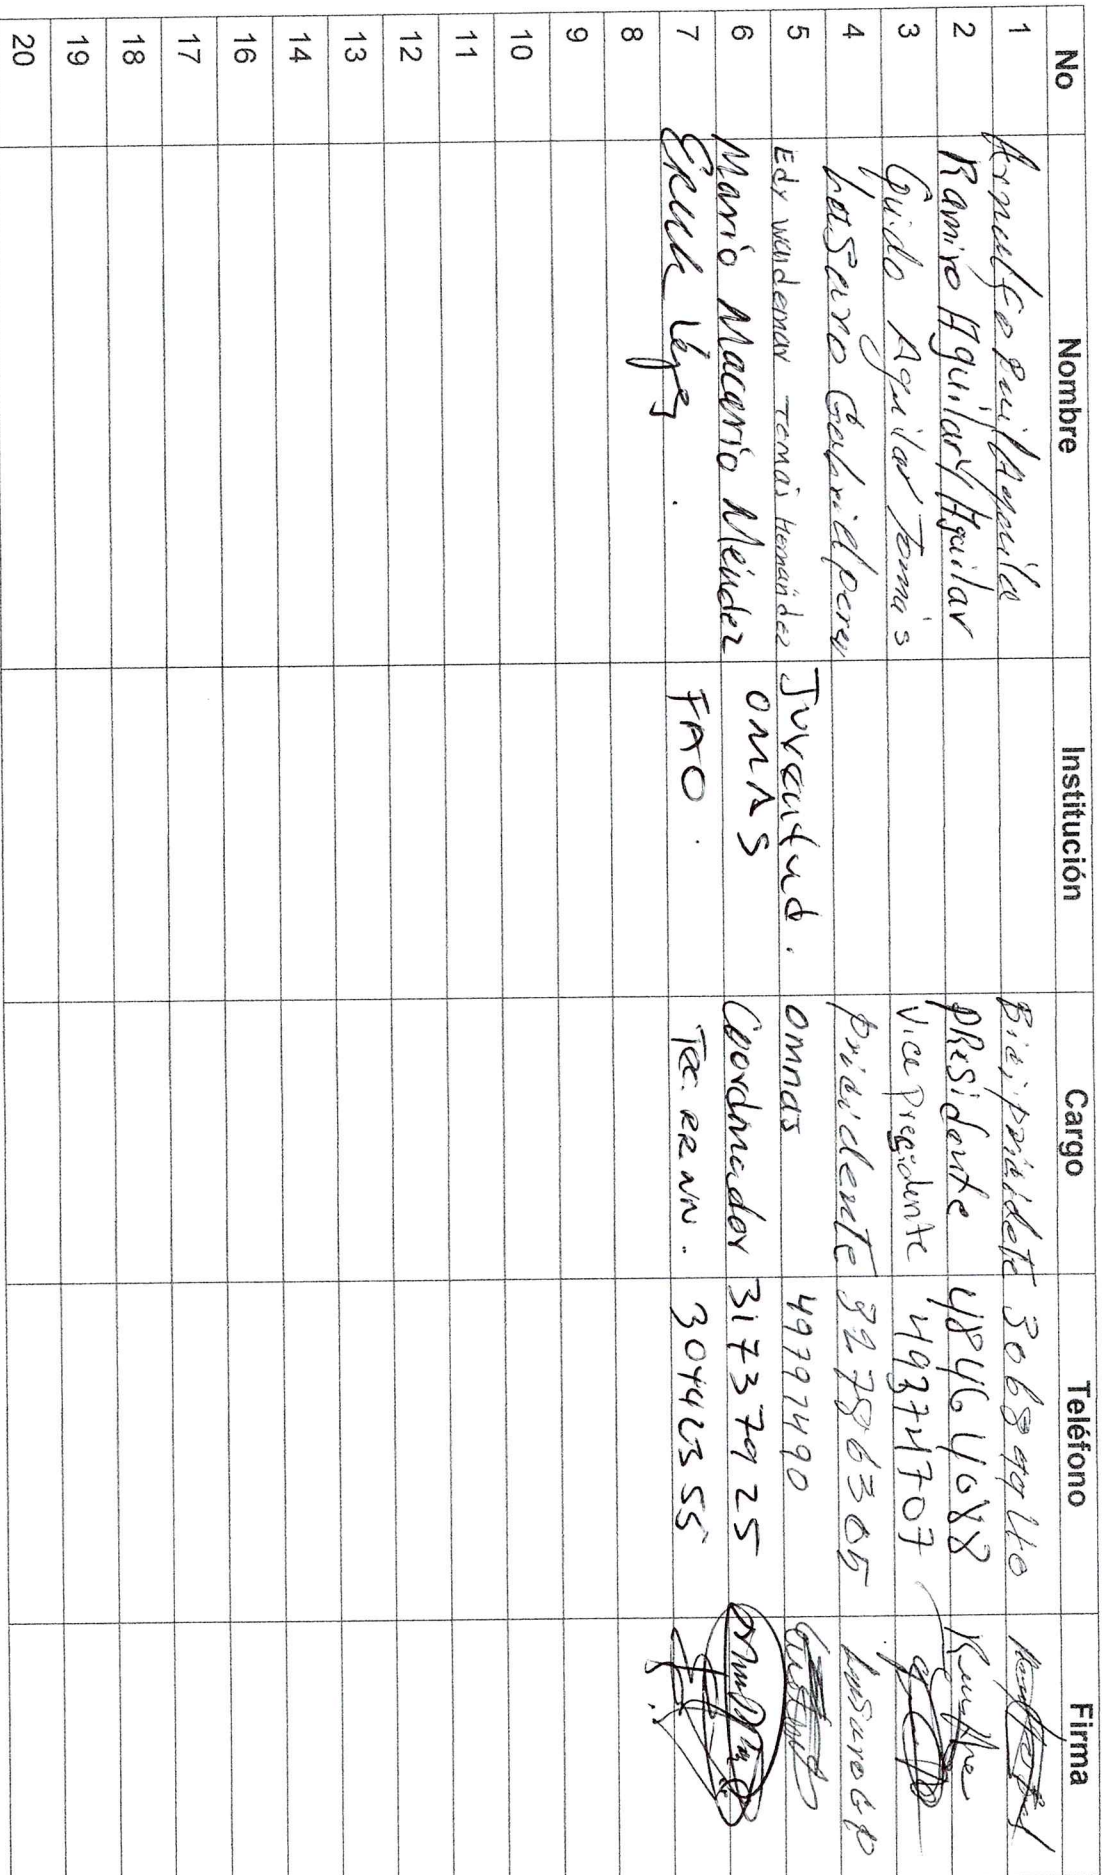 No Nombre Institución Cargo Teléfono Firma
1 30689940
2 Ramiro Aguilar y Aguilar PResidente 48464088
3 Guido Aguilar Tomás Vice Precidente 49374707
4 Gabriel perez pricidente 32786305
5 Edy Waldemar Tomás Hernández Juventud. omnas 49797490
6 Mario Macario Méndez OMAS Coordinador 31737925
7 FAO. Tec. RRNN. 30442355
8
9
10
11
12
13
14
15
16
17
18
19
20